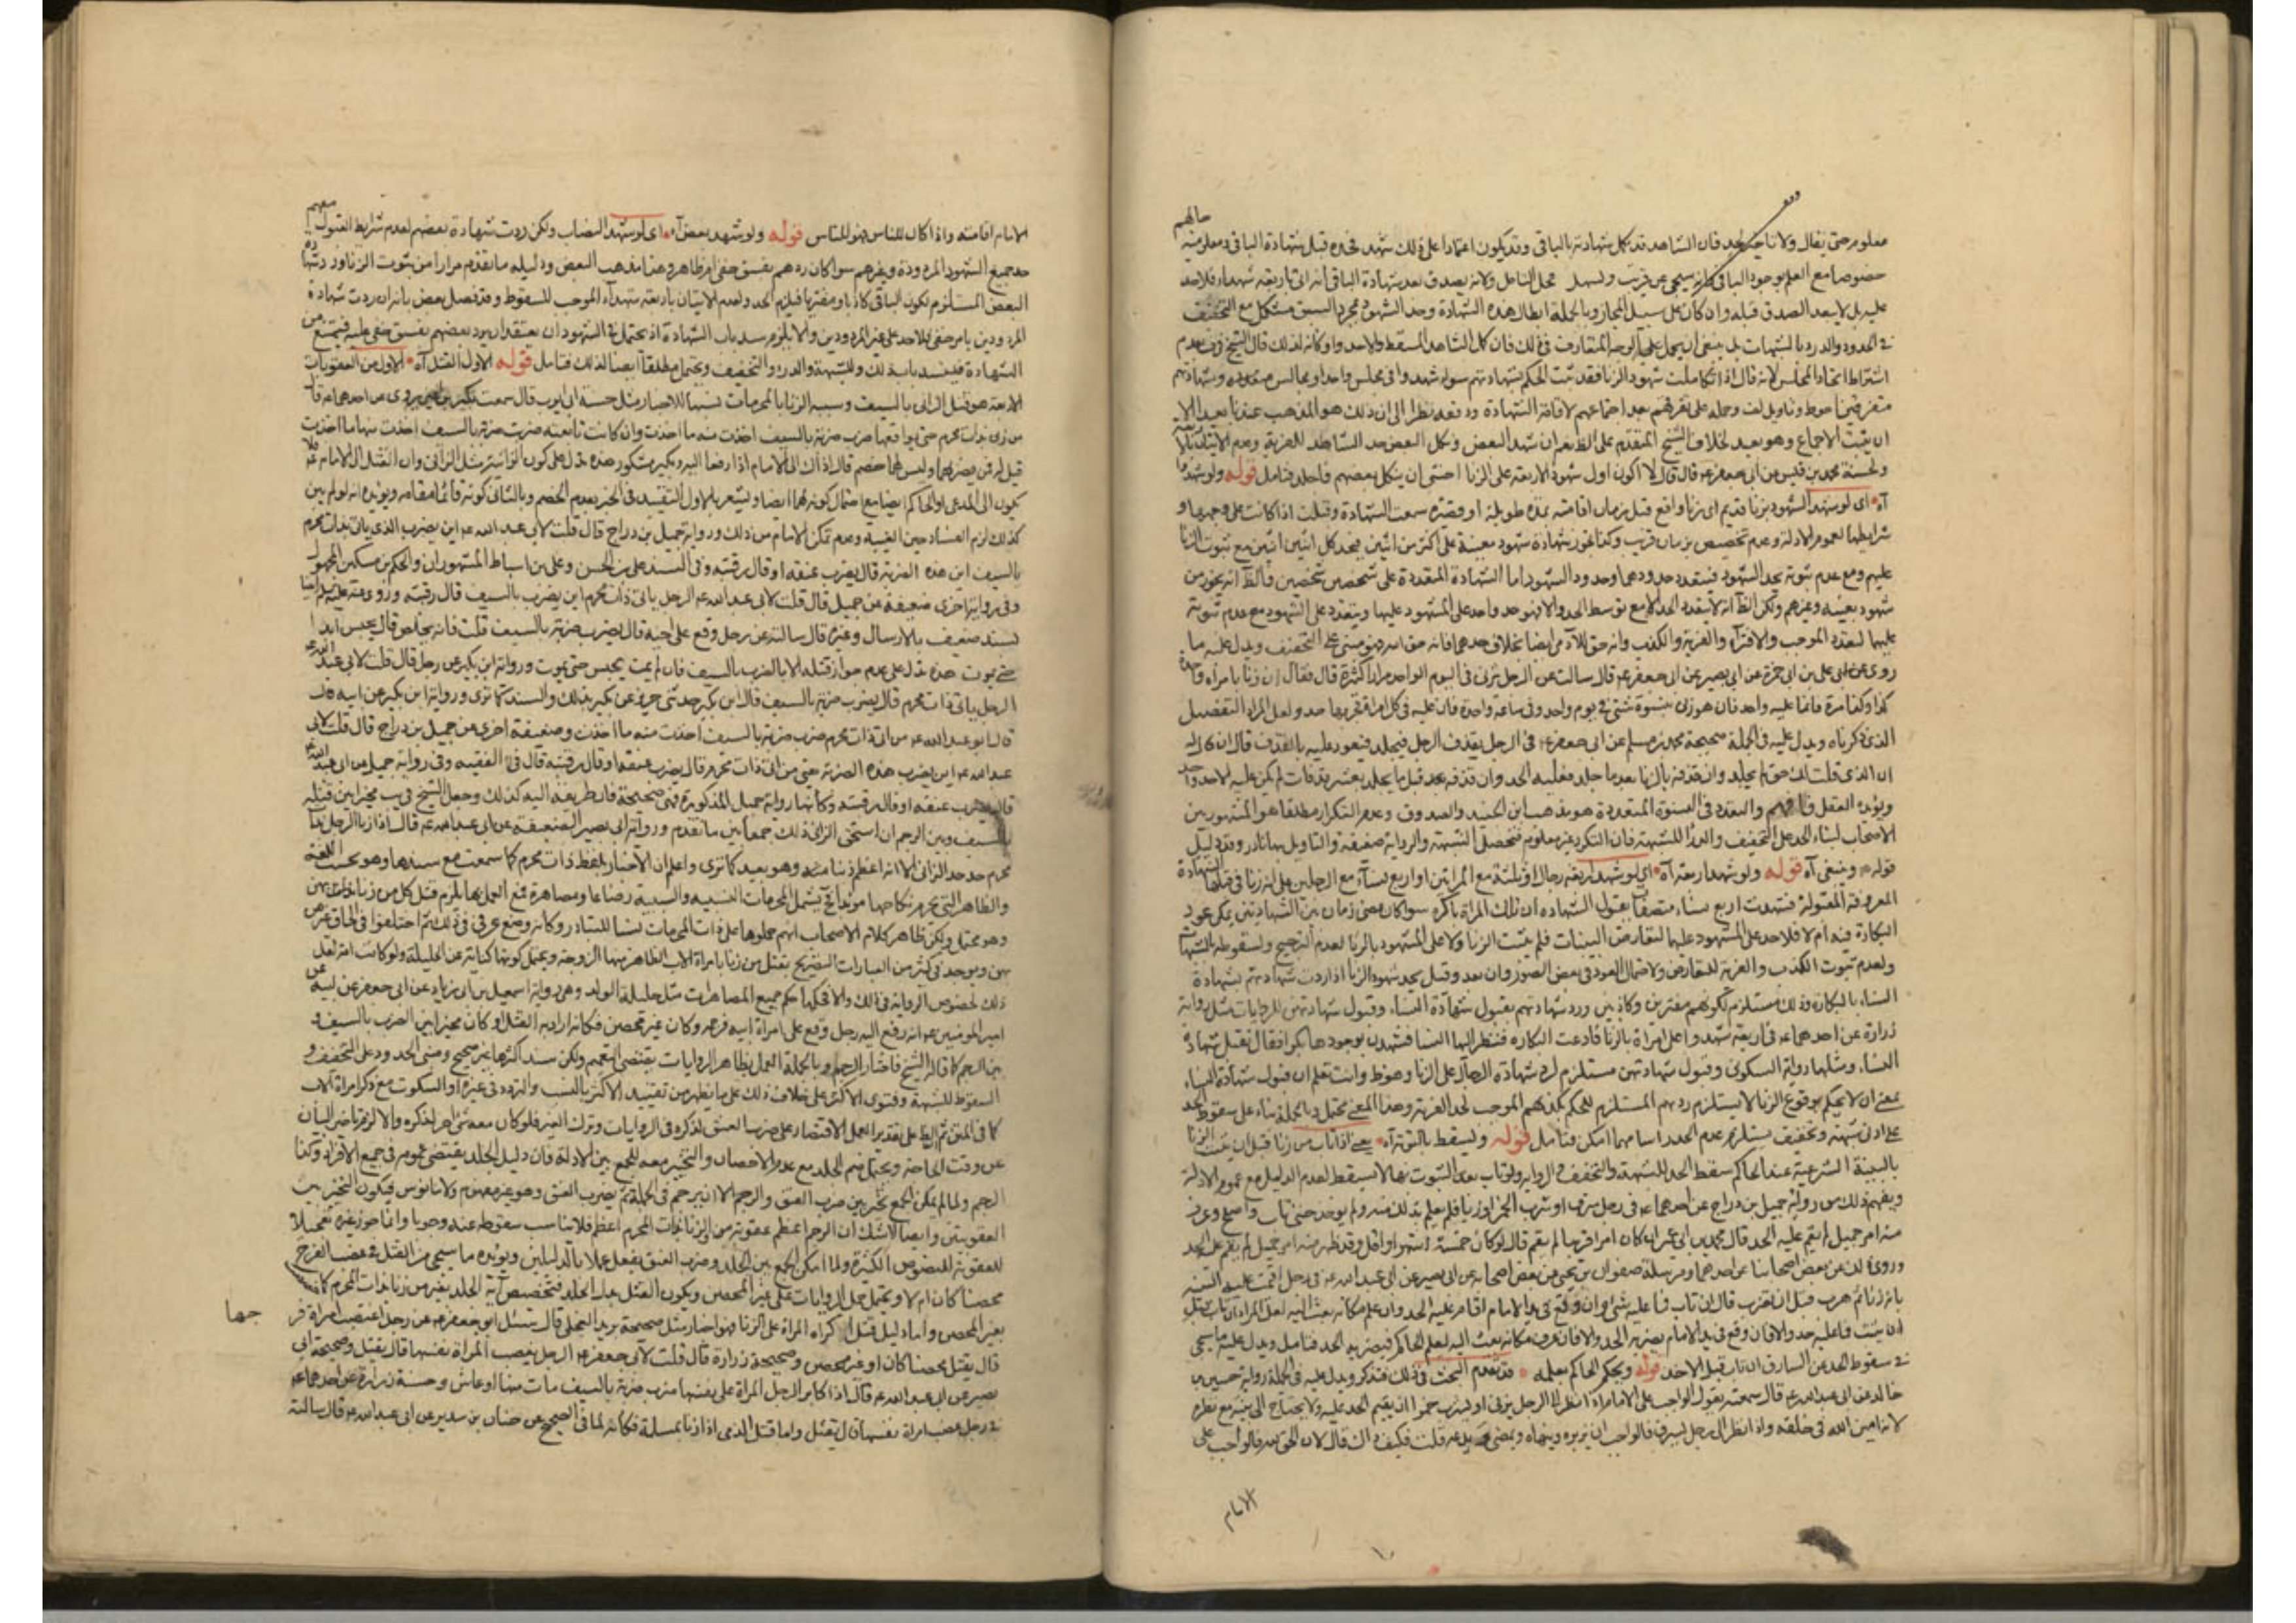 معلوم حتى يقال ولا تاخير لحد فان الشاهد قد يكل شهادته بالباقي وقد يكون اعتمادا على ذلك شهد فحده قبل شهادة الباقي ومعلومية حالهم
خصوصا مع العلم بوجود الباقي وانه سيجي عن قريب ويشهد محل التامل ولانه يصدق بعد شهادة الباقي انه اتى باربعة شهداء فلا حد
عليه بل لا يبعد الصدق قبله وان كان على سبيل المجاز وبالجملة ابطال هذه الشهادة وحد الشهود بمجرد السبق مشكل مع التخفيف
في الحدود والدرء بالشبهات بل ينبغي ان يحمل على الوجه المتعارف في ذلك فان كمل الشاهد المسقط والا حد واوكانه لذلك قال الشيخ في عدم
اشتراط اتحاد المجلس لانه قال اذا تكاملت شهود الزنا فقد ثبت الحكم بشهادتهم سواء شهدوا في مجلس واحد او مجالس متعدده وشهادتهم
متفرقين احوط وتاويل لف وحمله على تفرقهم بعد اجتماعهم لاقامة الشهادة ودفعه نظرا الى ان ذلك هو المذهب عندنا بعيد الا
ان يثبت الاجماع وهو بعيد لخلاف الشيخ المتقدم على الظ نعم ان شهد البعض ونكل البعض حد الشاهد للفرية وعدم الاتيان
ولحسنة محمد بن قيس عن ابي جعفر ع قال قال لا اكون اول شهود الاربعة على الزنا اخشى ان ينكل بعضهم فاجلد فتامل قوله ولو شهدوا
آه اي لو شهد الشهود بزنا قديم اي زنا واقع قبل زمان اقامته بمدة طويلة او قصيرة سمعت الشهادة وقبلت اذا كانت على وجهها و
شرايطها لعموم الادلة وعدم تخصيص بزمان قريب وكذا يجوز شهادة شهود معينة على اكثر من اثنين فيحد كل اثنين اثنين مع ثبوت الزنا
عليهم ومع عدم ثبوته يحد الشهود فيتعدد حدودهما وحدود الشهود اما الشهادة المتعددة على شخصين شخصين فالظ انه يجوز من
شهود بعينه وغيرهم ولكن الظ انه لا يتعدد الحد الا مع توسط الحد والا فهو حد واحد على المشهود عليها ويتعدد على الشهود مع عدم ثبوته
عليها لتعدد الموجب والافتراء والفرية والكذب وانه حق للادمي ايضا بخلاف حدهما فانه حق الله فهو مبني على التخفيف ويدل عليه ما
روى عن علي بن ابي حمزة عن ابي بصير عن ابي جعفر ع قال سالت عن الرجل يزني في اليوم الواحد مرارا كثيرة قال فقال ان زنا بامراة واحدة
كذا وكذا مرة فانما عليه واحد فان هو زنى بنسوة شتى في يوم واحد وفي ساعة واحدة فان عليه في كل امراة فجر بها حد ولعل المراد التفصيل
الذي ذكرناه ويدل عليه في الجملة صحيحة محمد بن مسلم عن ابي جعفر ع في الرجل يقذف الرجل فيجلد فيعود عليه بالقذف قال ان قال له
ان الذي قلت لك حق لم يجلد وان قذفه بالزنا بعد ما جلد فعليه الحد وان قذفه بعد قبل ما يجلد بعشر قذفات لم يكن عليه الا حد واحد
ويؤيده العقل فافهم والتعدد في النسوة المتعددة هو مذهب ابن الجنيد والصدوق وعدم التكرار مطلقا هو المشهور بين
الاصحاب لبناء الحد على التخفيف والدرأ للشبهة فان التكرر غير معلوم فتحصل الشبهة والرواية ضعيفة والتاويل بها نادر وقد دليل
قوله وينبغي آه قوله ولو شهد اربعة آه اي لو شهد اربعة رجال او ثلثة مع المراتين او اربع نساء مع الرجلين على انه زنا في قبلها الشهادة
المعروفة المقبولة فشهدت اربع نساء متصفات بقبول الشهاده ان تلك المراة باكره سواء كان مضى زمان بين الشهادتين يمكن عود
البكارة فيه ام لا فلا حد على المشهود عليها لتعارض البينات فلم يثبت الزنا ولا على المشهود بالزنا لعدم الترجيح ولسقوطه بالشبهات
ولعدم ثبوت الكذب والفرية للتعارض ولاحتمال العود في بعض الصور وان بعد وقيل يحد شهود الزنا اذا ردت شهادتهم بشهادة
النساء بالبكارة وذلك مستلزم لكونهم مفترين وكاذبين ورد شهادتهم بقبول شهادة النساء وقبول شهادتهن للروايات مثل رواية
زرارة عن احدهما ع في اربعة شهدوا على امراة بالزنا فادعت البكاره فنظر اليها النسا فشهدن بوجودها بكرا فقال نقبل شهادة
النساء ومثلها رواية السكوني وقبول شهادتهن مستلزم لرد شهادة الرجال على الزنا وهو ظ وانت تعلم ان قبول شهادة النساء
بمعنى ان لا يحكم بوقوع الزنا لا يستلزم ردهم المستلزم للحكم بكذبهم الموجب لحد الفرية وهذا المعنى محتمل وبالجملة بناء على سقوط الحد
على ادنى شبهة وتخفيف يستلزم عدم الحدد اسامهما امكن فتامل قوله ويسقط بالتوبة آه يعني اذا تاب من زنا قبل ان يثبت الزنا
بالبينة الشرعية عند الحاكم سقط الحد للشبهة والتخفيف والرواية ولو تاب بعد الثبوت بها لا يسقط لعدم الدليل مع عموم الادلة
ويفهم ذلك من رواية جميل بن دراج عن احدهما ع في رجل سرق او شرب الخمر او زنا فلم يعلم بذلك منه ولم يوخذ حتى تاب واصلح وعرف
منه امر جميل لم يقم عليه الحد قال محمد بن ابي عمير ان كان امرا قريبا لم يقم قال لو كان خمسة اشهر او اقل وقد ظهر منه امر جميل لم يقم عليه الحد
وروى ذلك عن بعض اصحابنا عن احدهما ومرسلة صفوان بن يحيى عن بعض اصحابه عن ابي بصير عن ابي عبد الله ع في رجل اقيمت عليه البينة
بانه زنا ثم هرب قبل ان يضرب قال ان تاب فما عليه شي وان وقع في يد الامام اقام عليه الحد وان علم مكانه بعث اليه لعل المراد ان تاب قبل
ان يثبت فما عليه حد والا فان وقع في يد الامام يضربه الحد والا فان عرف مكانه يبعث اليه لعلم الحاكم فيضربه الحد فتامل ويدل عليه ما يجي
في سقوط الحد عن السارق ان تاب قبل الاخذ قوله ويحكم الحاكم بعلمه قد تقدم البحث في ذلك فتذكر ويدل عليه في الجملة رواية حسين بن
خالد عن ابي عبد الله ع قال سمعته يقول الواجب على الامام اذا نظر الى الرجل يزني او يشرب خمرا ان يقيم الحد عليه ولا يحتاج الى بينة مع نظره
لانه امين الله في خلقه واذا نظر الى رجل يسرق فالواجب ان يزبره وينهاه ويمضي ويدعه قلت فكيف ذاك قال لان الحق لله فالواجب على
الامام
الامام اقامته واذا كان للناس فهو للناس قوله ولو شهد بعض آه اي لو شهد النصاب ولكن ردت شهادة بعضهم لعدم شرايط القبول معهم
حد جميع الشهود المردودة وغيرهم سواء كان ردهم بفسق خفي ام ظاهر وهذا مذهب البعض ودليله ما تقدم مرارا من ثبوت الزنا ورد شهادة
البعض المستلزم لكون الباقي كاذبا ومفتريا فيلزم الحد ولعدم الاتيان باربعة شهداء الموجب للسقوط وقد فصل بعض بانه ان ردت شهادة
المردودين بامر خفي فلا حد على غير المردودين والا يلزم سد باب الشهادة اذ يحتمل في الشهود ان يعتقد ان يرد بعضهم بفسق خفي عليه فيمتنع من
الشهادة فينسد باب ذلك وللشبهة والدرء والتخفيف ويحتمل مطلقا ايضا لذلك فتامل قوله الاول القتل آه الاول من العقوبات
الاربعة هو قتل الزاني بالسيف وسببه الزنا بالمحرمات نسبا للاخبار مثل حسنة ابي ايوب قال سمعت بكير بن اعين يروى عن احدهما ع قال
من زنى بذات محرم حتى يواقعها ضرب ضربة بالسيف اخذت منه ما اخذت وان كانت تابعته ضربت ضربة بالسيف اخذت منها ما اخذت
قيل له فمن يضربهما وليس لهما خصم قال ذاك الى الامام اذا رفعا اليه وبكير مشكور هذه تدل على كون الزانية مثل الزاني وان القتل الى الامام ع فلا
يكون الى المدعي او الحاكم ايضا مع احتمال كونه لهما ايضا ويشعر بالاول التقييد في الخبر بعدم الخصم وبالثاني كونه قائما مقامه ويؤيده انه لو لم يكن
كذلك لزم الفساد حين الغيبة وعدم تمكن الامام من ذلك ورواية جميل بن دراج قال قلت لابي عبد الله ع اين يضرب الذي ياتي ذات محرم
بالسيف اين هذه الضربة قال يضرب عنقه او قال رقبته وفي السند علي بن الحسن وعلي بن اسباط المشهوران والحكم بن مسكين المجهول
وفي رواية اخرى ضعيفة عن جميل قال قلت لابي عبد الله ع الرجل ياتي ذات محرم اين يضرب بالسيف قال رقبته وروى
بسند ضعيف بالارسال وغيره قال سالته عن رجل وقع على اخته قال يضرب ضربة بالسيف قلت فانه يخلص قال يحبس ابدا
حتى يموت هذه تدل على عدم جواز قتله الا بالضرب بالسيف فان لم يمت يحبس حتى يموت ورواية ابن بكير عن رجل قال قلت لابي عبد الله ع
الرجل ياتي ذات محرم قال يضرب ضربة بالسيف قال ابن بكير حدثني حريز عن بكير بذلك والسند كما ترى ورواية ابن بكير عن ابيه قال
قال ابو عبد الله ع من اتى ذات محرم ضرب ضربة بالسيف اخذت منه ما اخذت وضعيفة اخرى عن جميل بن دراج قال قلت لابي
عبد الله ع اين يضرب هذه الضربة يعني من اتى ذات محرم قال يضرب عنقه او قال رقبته قال في الفقيه وفي رواية جميل عن ابي عبد الله ع
قال يضرب عنقه او قال رقبته وكأنها رواية جميل المذكورة فهي صحيحة فان طريقه اليه كذلك وجعل الشيخ في يب مخيرا بين قتله
بالسيف وبين الرجم ان استحق الزاني ذلك جمعا بين ما تقدم ورواية ابي بصير الضعيفة عن ابي عبد الله ع قال اذا زنا الرجل بذات
محرم حد حد الزاني الا انه اعظم ذنبا منه وهو بعيد كما ترى واعلم ان الاخبار بلفظ ذات محرم كما سمعت مع سندها وهو بحسب اللغة
والظاهر التي يحرم نكاحها مؤبدا فيشمل المحرمات النسبيه والسببية رضاعا ومصاهرة فمع العمل بها يلزم قتل كل من زنا بواحدة منهن
وهو محتمل ولكن ظاهر كلام الاصحاب انهم حملوها على ذات المحرمات نسبا للتبادر وكانه وضع عرفي في ذلك ثم اختلفوا في الحاق غيرهن
بهن ويوجد في كثير من العبارات التصريح بقتل من زنا بامراة الاب الظاهر منها الزوجة ويحتمل كونها كناية عن الحليلة ولو كانت امة لعل
ذلك لخصوص الرواية في ذلك والا فحكمها حكم جميع المصاهرات مثل حليلة الولد وهي رواية اسمعيل بن ابي زياد عن ابي جعفر عن ابيه عن
امير المؤمنين ع انه رفع اليه رجل وقع على امراة ابيه فرجمه وكان غير محصن فكانه اراد به القتل او كان مخيرا بين الضرب بالسيف و
بين الرجم كما قاله الشيخ فاختار الرجم وبالجملة العمل بظاهر الروايات يقتضي التعميم ولكن سند اكثرها غير صحيح ومبنى الحدود على التخفيف و
السقوط للشبهة وفتوى الاكثر على خلاف ذلك على ما يظهر من تقييد الاكثر بالنسب والتردد في غيره او السكوت مع ذكر امراة الاب
كما في المتن ثم الظ على تقدير العمل الاقتصار على ضرب العنق لذكره في الروايات وترك الغير فلو كان معه شي اخر لذكره والا لزم تاخير البيان
عن وقت الحاجة ويحتمل ضم الجلد مع عدم الاحصان والتخيير معه للجمع بين الادلة فان دليل الجلد يقتضي عمومه في جميع الافراد وكذا
الرجم ولما لم يمكن الجمع تخير بين ضرب العنق والرجم الا ان يرجم في الجملة ثم يضرب العنق وهو غير مفهوم ولا مانوس فيكون التخيير بين
العقوبتين وايضا لاشك ان الرجم اعظم عقوبة من الزنا بذات المحرم اعظم فلا يناسب سقوطه عنه وجوبا وانما جوز غيره تعجيلا
للعقوبة للنصوص الكثيرة ولما امكن الجمع بين الجلد وضرب العنق يفعل عملا بالدليلين ويؤيده ما سيجي من القتل في غصب الفرج
محصنا كان ام لا ويحتمل حمل الروايات على غير المحصن ويكون القتل بدل الجلد فتخصيص آية الجلد بغير من زنا بذات المحرم كما
بغير المحصن واما دليل قتل اكراه المراة على الزنا فهو اخبار مثل صحيحة بريد العجلي قال سئل ابو جعفر ع عن رجل اغتصب امراة فرجها
قال يقتل محصنا كان او غير محصن وصحيحة زرارة قال قلت لابي جعفر ع الرجل يغصب المراة نفسها قال يقتل وصحيحة ابي
بصير عن ابي عبد الله ع قال اذا كابر الرجل المراة على نفسها ضرب ضربة بالسيف مات منها او عاش وحسنة زرارة عن احدهما ع
في رجل غصب امراة نفسها قال يقتل واما قتل الذمي اذا زنا بمسلمة فكأنه لما في الصحيح عن حنان بن سدير عن ابي عبد الله ع قال سالته